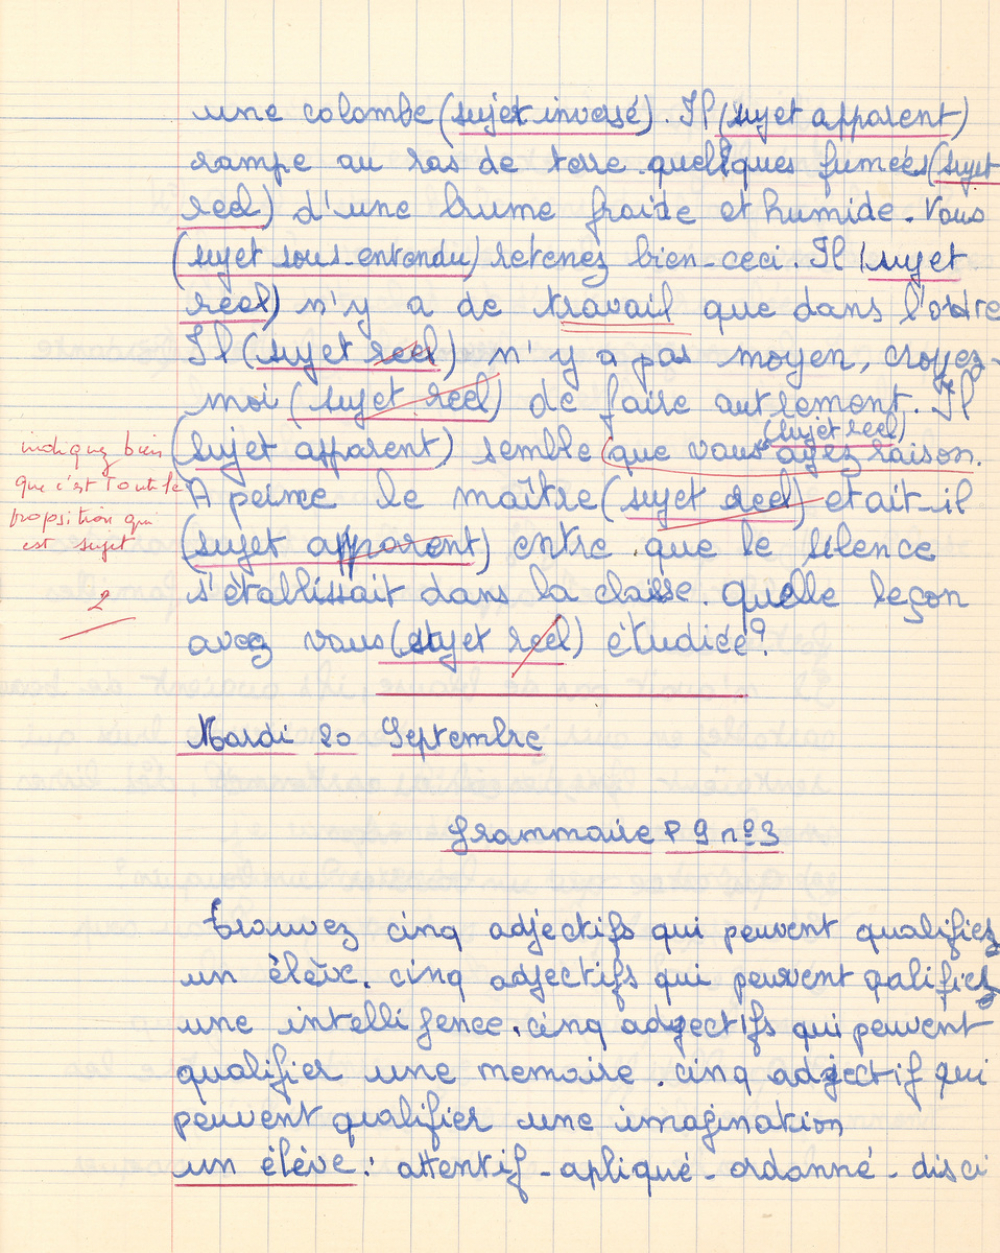 une colombe (sujet inversé). Il (sujet apparent)
rampe au ras de terre quelques fumées (sujet
réel) d'une brume froide et humide. Vous
(sujet sous-entendu) retenez bien-ceci. Il (sujet
réel) n'y a de travail que dans l'ordre
Il (sujet réel) n'y a pas moyen, croyez-
moi (sujet réel) de faire autrement. Il
(sujet réel)
(sujet apparent) semble (que vous ayez raison.
indiquez bien
que c'est toute la
proposition qui
est sujet
2
A peine le maître (sujet réel) etait-il
(sujet apparent) entre que le silence
s'établissait dans la classe. Quelle leçon
avez vous (sujet réel) étudiée?
Mardi 20 Septembre
Grammaire P 9 n° 3
Trouvez cinq adjectifs qui peuvent qualifier
un élève. cinq adjectifs qui peuvent qalifier
une intelligence. cinq adjectifs qui peuvent
qualifier une memoire. cinq adjectif qui
peuvent qualifier une imagination
un élève : attentif - apliqué - ordonné - disci